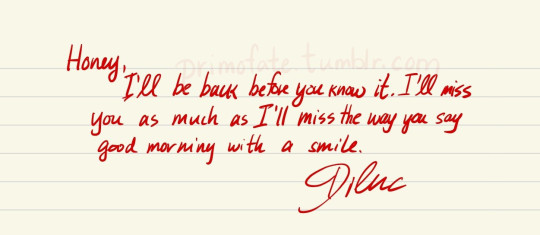 primofate.tumblr.com
Honey,
I'll be back before you know it. I'll miss
you as much as I'll miss the way you say
good morning with a smile.
Diluc